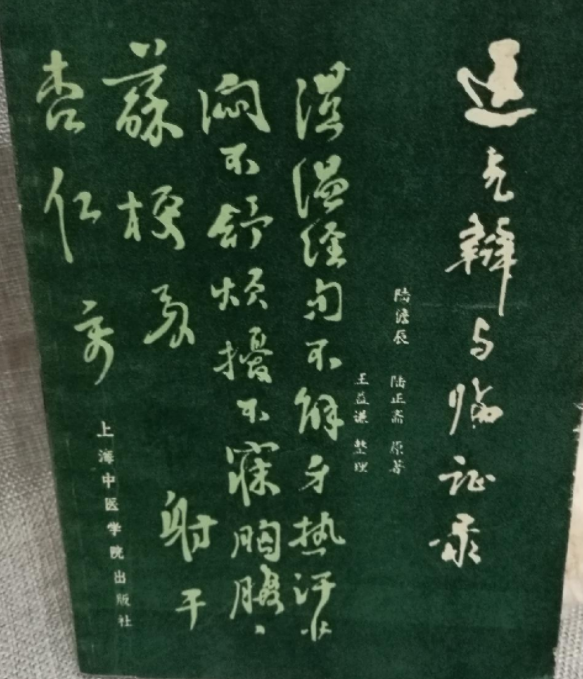 运气辩与临证录
陆儋辰 陆正斋 原著
王益谦 整理
湿温经旬不解身热汗
闷不舒烦扰不寐胸膈
蘇梗
射干
杏仁
上海中医学院出版社